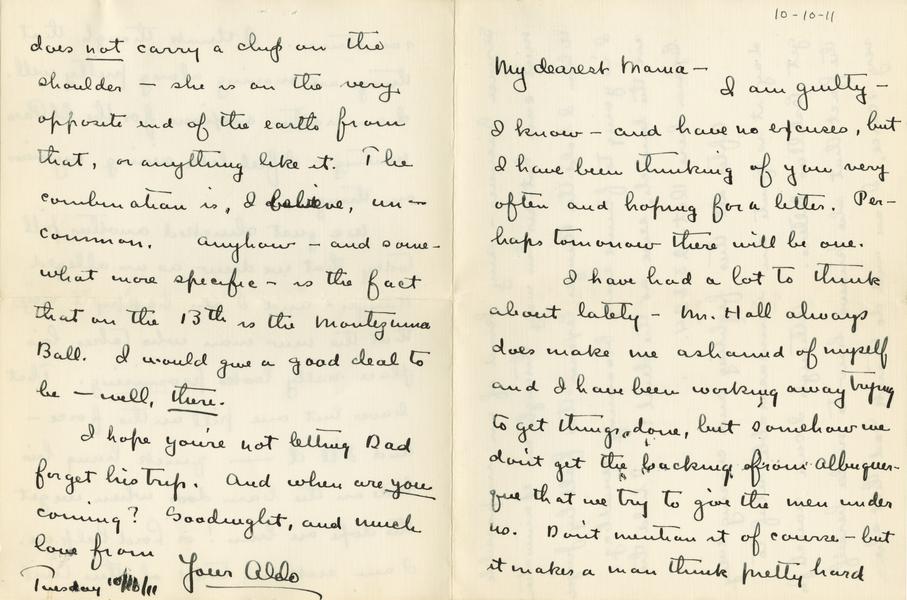 10-10-11
My dearest Mama –
I am guilty –
I know – and have no excuses, but
I have been thinking of you very
often and hoping for a letter. Per-
haps tomorrow there will be one.
I have had a lot to think
about lately – Mr. Hall always
does make me ashamed of myself
and I have been working away trying
to get things done, but somehow we
don't get the backing from Albuquer-
que that we try to give the men under
us. Don't mention it of course – but
it makes a man think pretty hard
does not carry a chip on the
shoulder – she is on the very
opposite end of the earth from
that, or anything like it. The
combination is, I believe, un-
common. Anyhow – and some-
what more specific – is the fact
that on the 13th is the Montezuma
Ball. I would give a good deal to
be – well, there.
I hope you're not letting Dad
forget his trip. And when are you
coming? Goodnight, and much
love from
Your Aldo
Tuesday 10/10/11